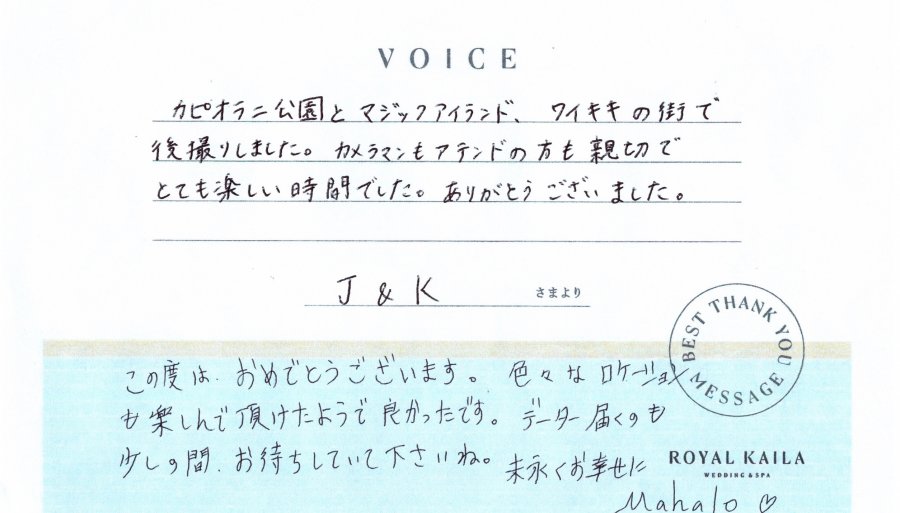 VOICE
カピオラニ公園とマジックアイランド、ワイキキの街で
後撮りしました。カメラマンもアテンドの方も親切で
とても楽しい時間でした。ありがとうございました。
J & K さまより
BEST THANK YOU MESSAGE
この度は、おめでとうございます。色々なロケーション
も楽しんで頂けたようで良かったです。データー届くのも
少しの間、お待ちしていて下さいね。末永くお幸せに
ROYAL KAILA
WEDDING & SPA
Mahalo ♡